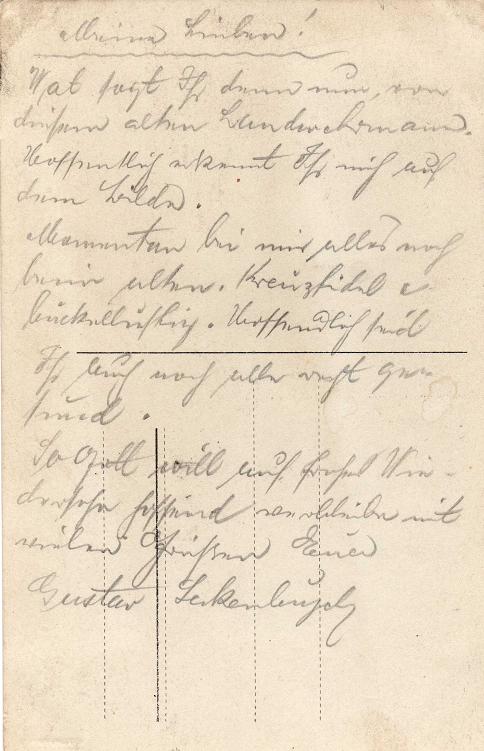 Meine Lieben!
Wat sagt Ihr denn nun, von
diesem alten Landwehrmann.
Hoffentlich erkennt Ihr mich auf
dem Bilde.
Momentan bei mir alles noch
beim alten. Kreuzfidel &
buckellustig. Hoffendlich seid
Ihr auch noch alle recht ge-
sund.
So Gott will auf frohes Wie-
dersehn hoffend verbleibe mit
vielen Grüßen Euer
Gustav